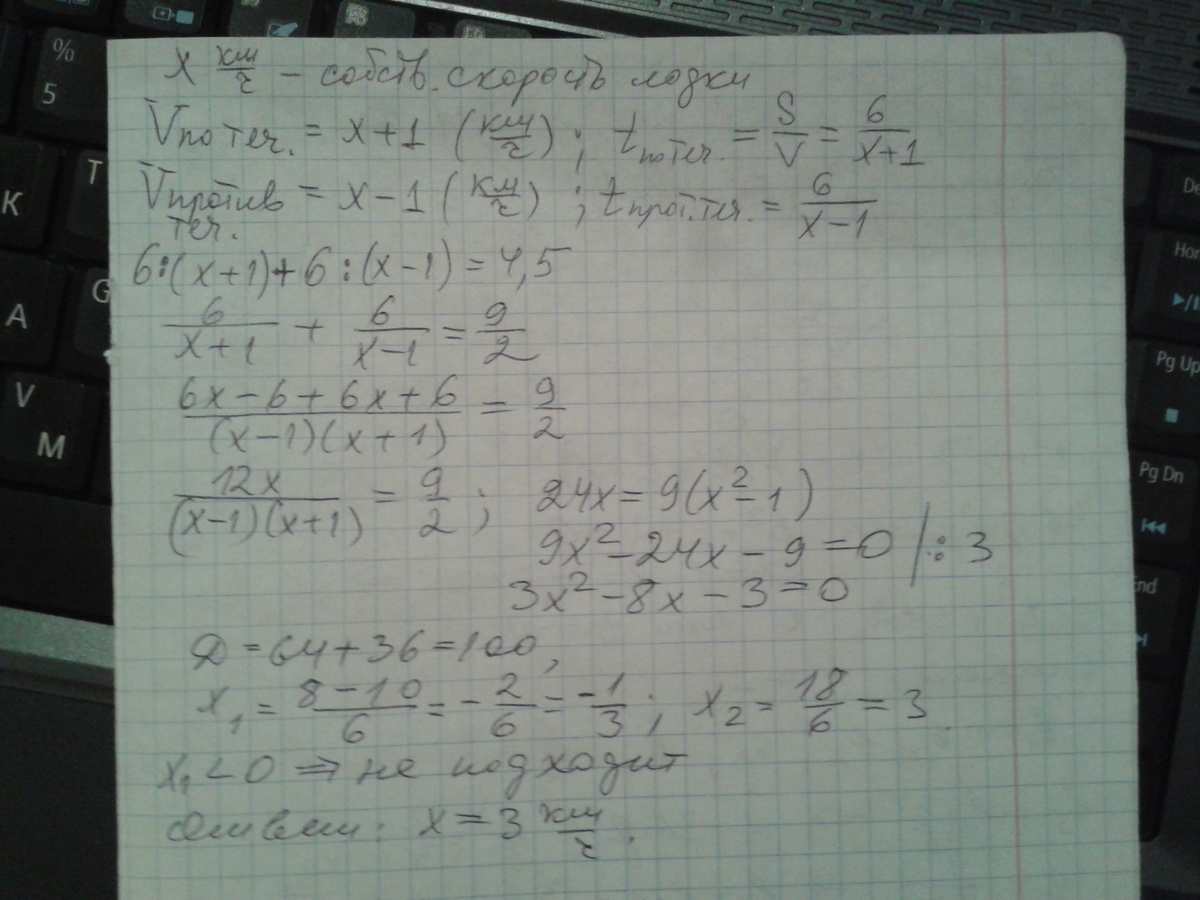 x км/ч – собств. скорость лодки
Vпо теч. = x+1 (км/ч); tпо теч. = S/V = 6/(x+1)
Vпротив теч. = x–1 (км/ч); tпрот. теч. = 6/(x–1)
6:(x+1)+6:(x–1)=4,5
6/(x+1) + 6/(x–1) = 9/2
(6x–6+6x+6)/((x–1)(x+1)) = 9/2
12x/((x–1)(x+1)) = 9/2; 24x=9(x²–1)
9x²–24x–9=0 |:3
3x²–8x–3=0
D=64+36=100,
x₁ = (8–10)/6 = –2/6 = –1/3; x₂ = 18/6 = 3
x₁<0 ⇒ не подходит
Ответ: x=3 км/ч.
%
5
T
К
G
А
V
М
Pg Up
Pg Dn